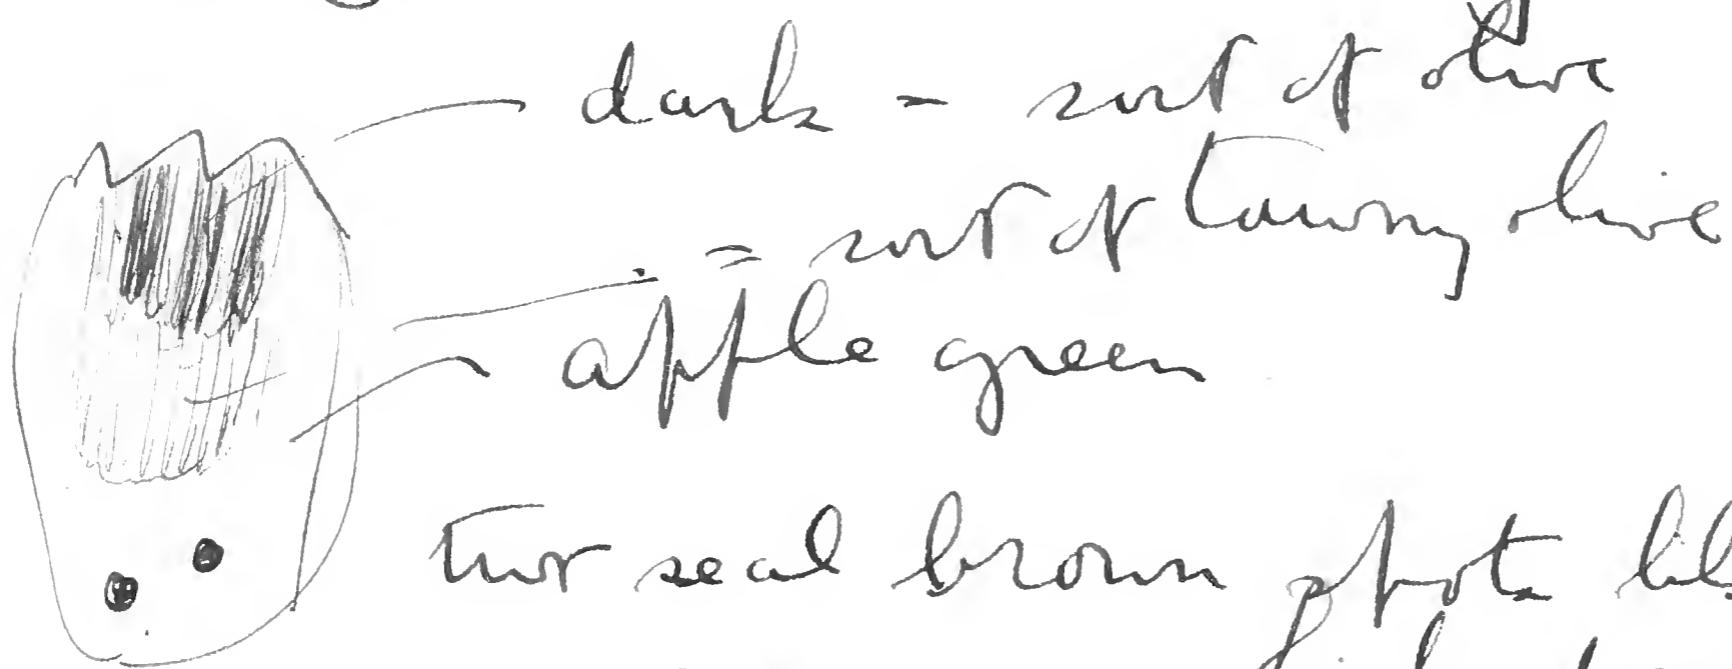 dark = sort of olive
= sort of tawny olive
apple green
two seal brown spots